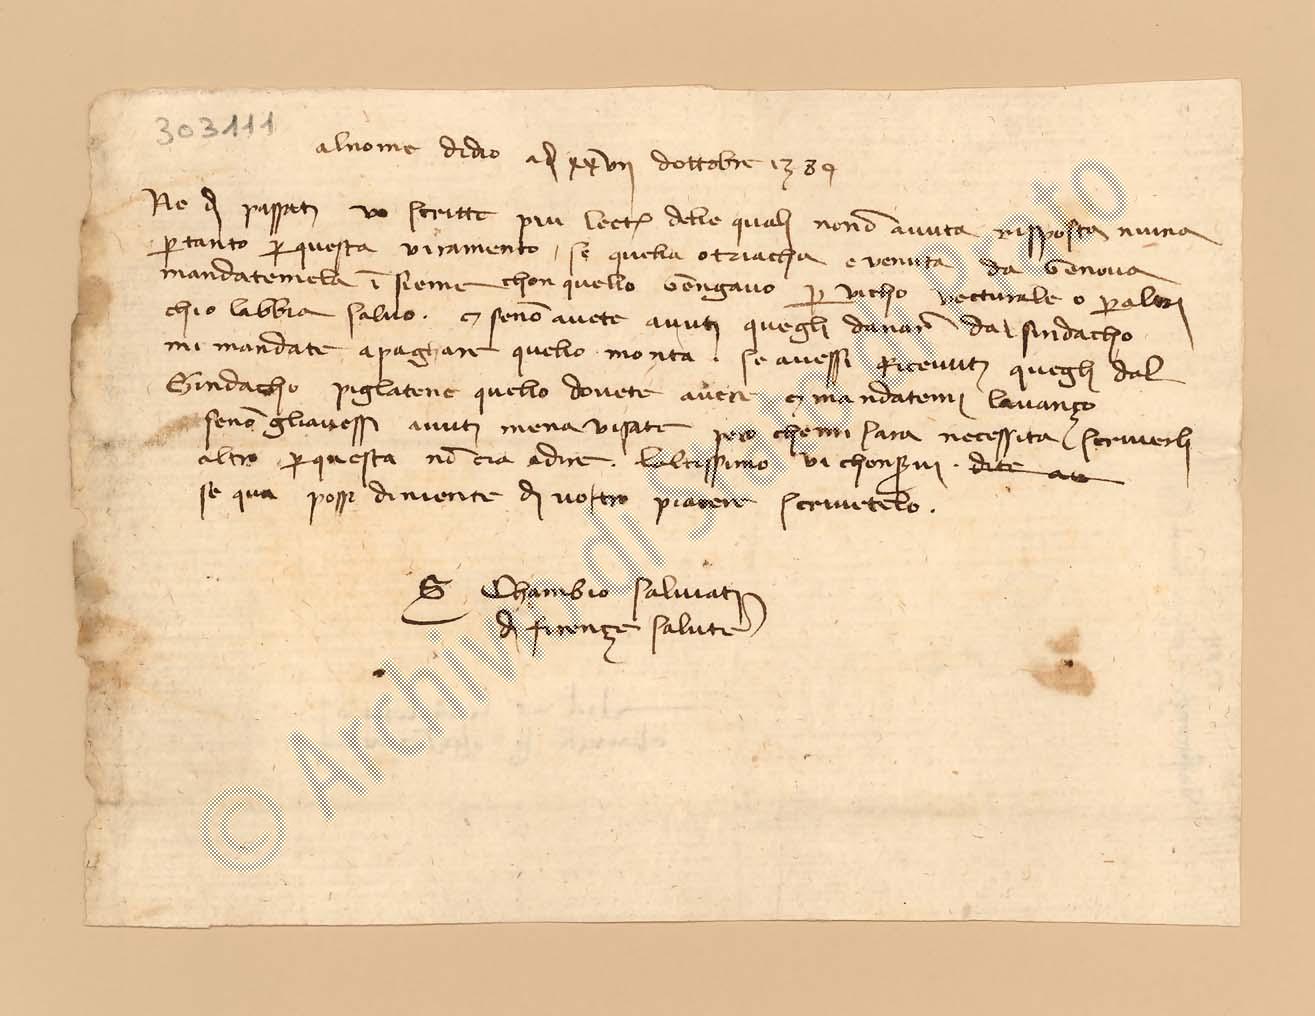 303111
al nome didio adì xxvii dottobre 1389
Ne dì passati vo scritto più lect. delle quali non ò avuta risposta niuna
pertanto per questa vi ramento, se quella otriacha è venuta da Genova
mandatemela insieme chon quello Gengavo per vicho vecturale o per altri
chio labbia salvo. e se non avete avuti quegli danari dal sindacho
mi mandate a pagare quello monta. Se avessi ricevuti quegli dal
Sindacho piglatene quello dovete avere e mandatemi lavanço
se non gli avessi avuti mena visate però che mi sara necessità scriverli
altro per questa non cia a dire. laltissimo vi chonservi.
se qua posso di niente di vostro piacere scrivetelo.
Chambio Salviati
di firençe salute
© Archivio di Stato di Prato